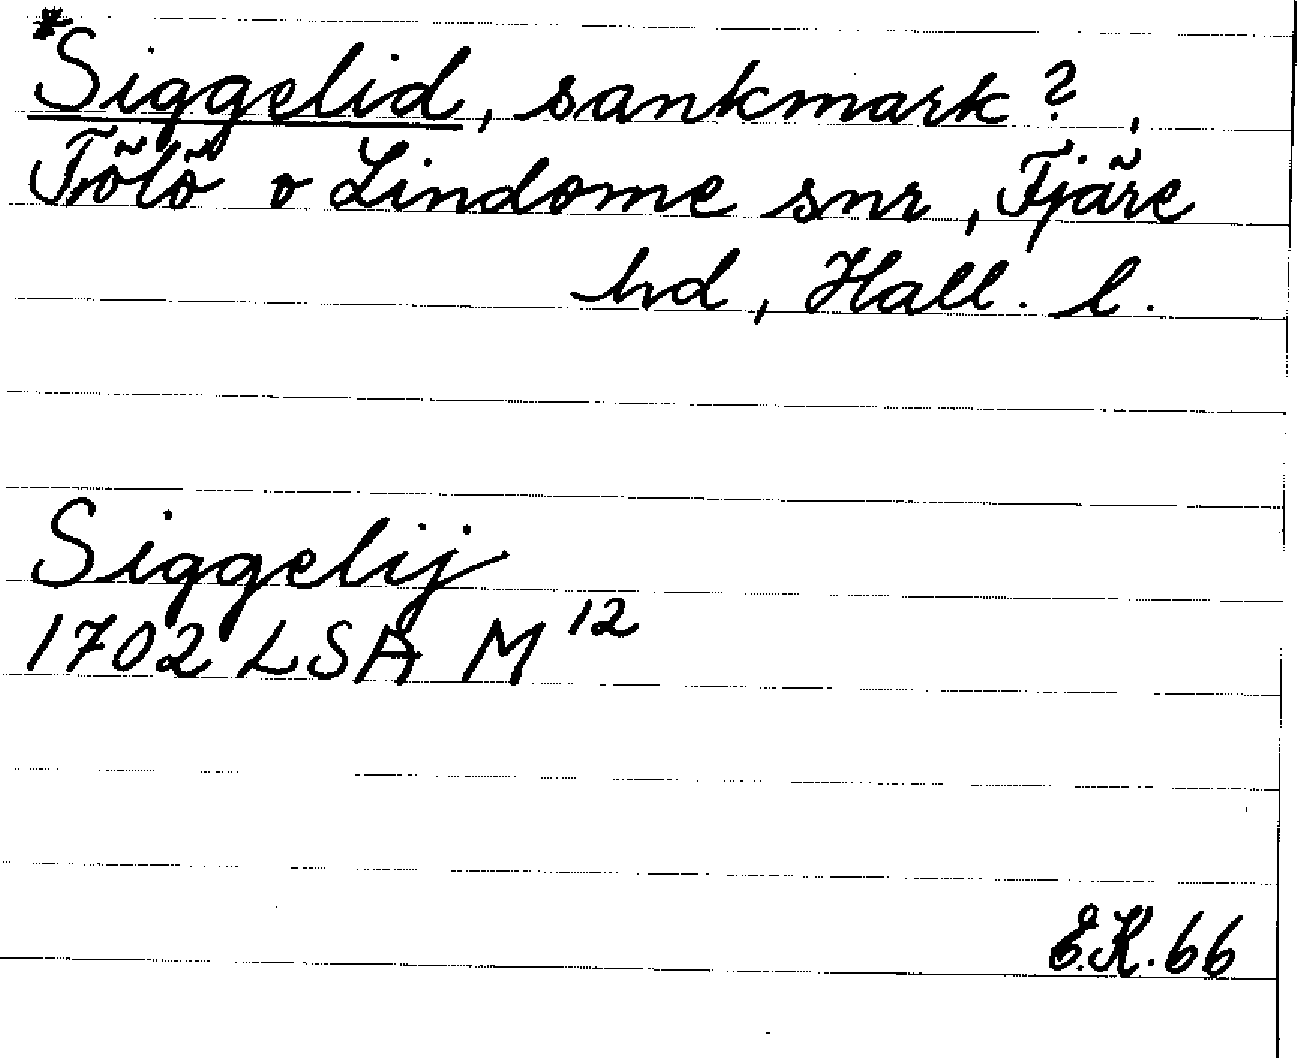 *Siggelid, sankmark?,
Tölö o Lindome snr, Fjäre
hd, Hall. l.
Siggelij
1702 LSA M 12
E.K. 66